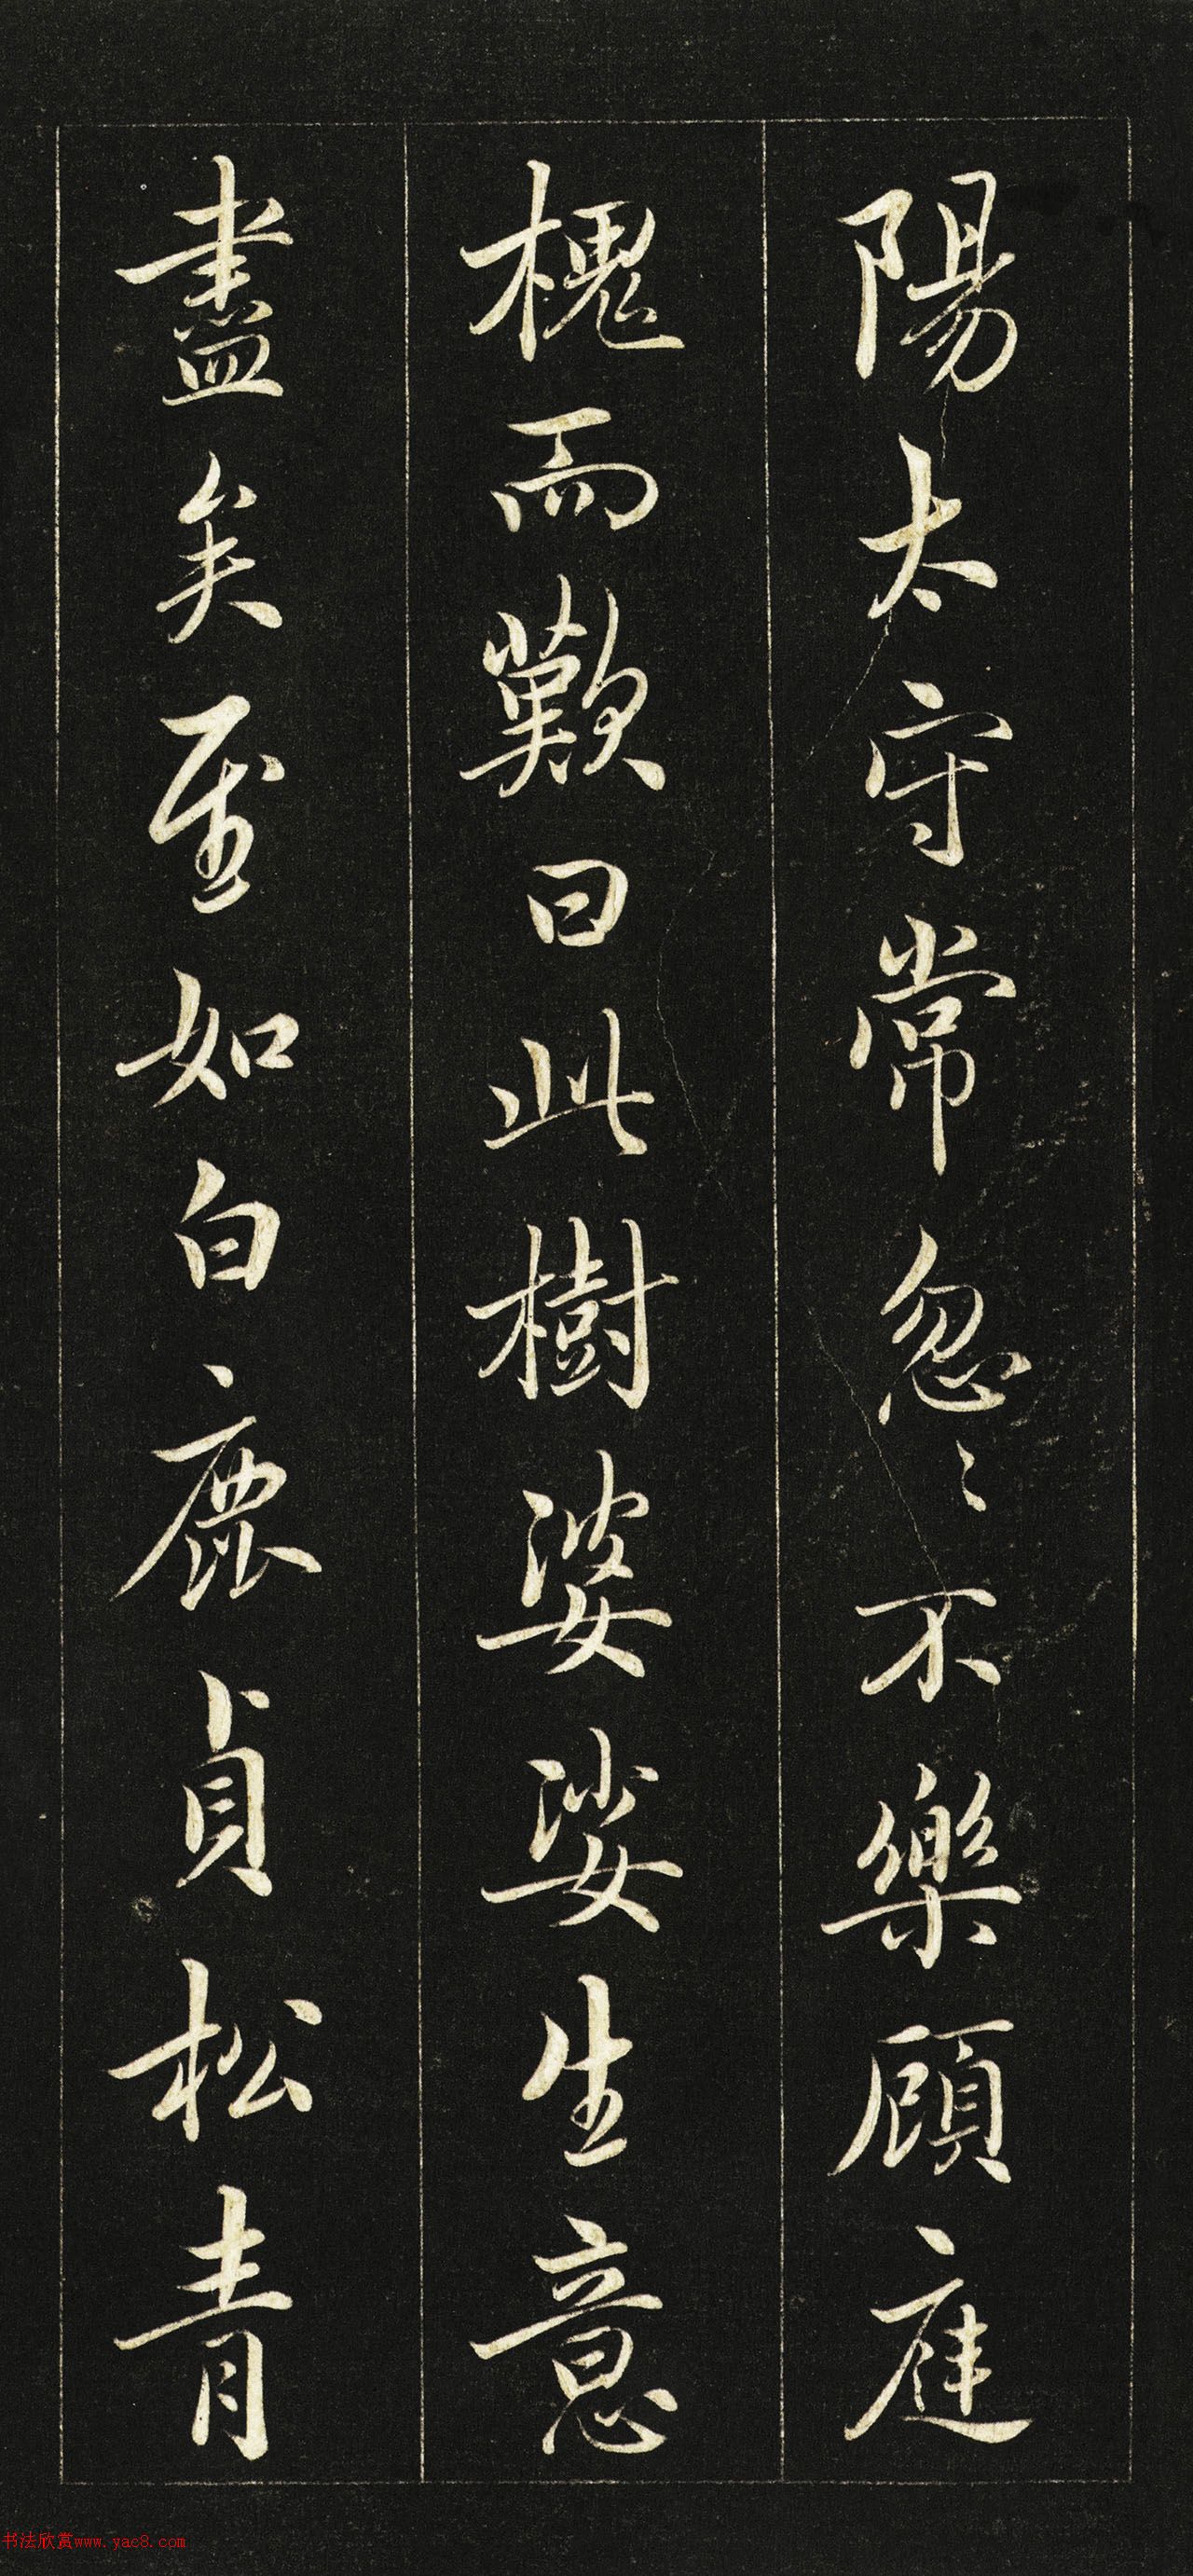 陽太守常忽〻不樂顧庭
槐而歎曰此樹婆娑生意
盡矣至如白鹿貞松青
书法欣赏www.yac8.com